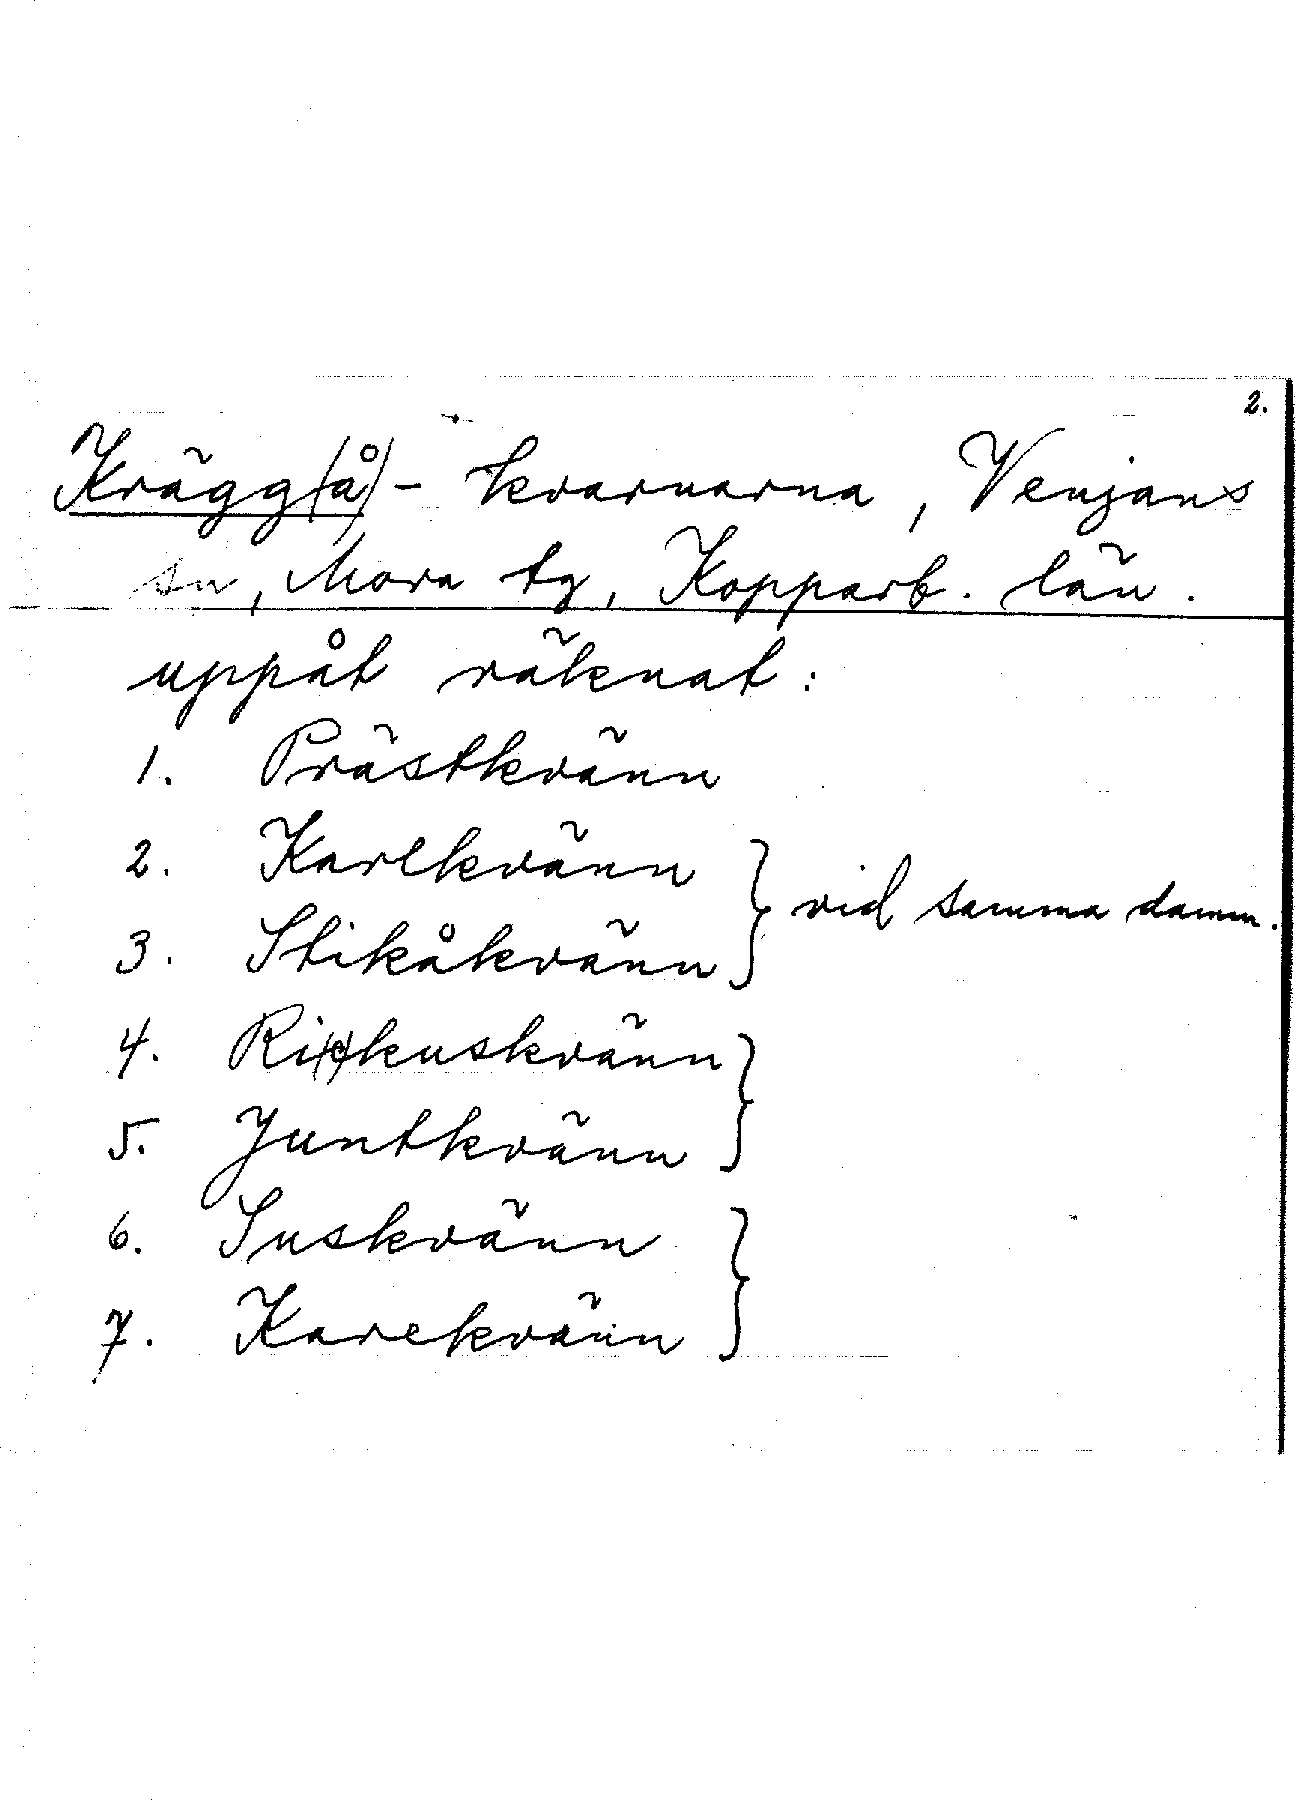 2.
Krägg(å)-kvarnarna, Venjans
sn, Mora tg, Kopparb. län.
uppåt räknat:
1. Prästkvänn
2. Karlkvänn
3. Stikåkvänn } vid samma damm.
4. Ri(c)kuskvänn
5. Juntkvänn }
6. Suskvänn
7. Karekvänn }